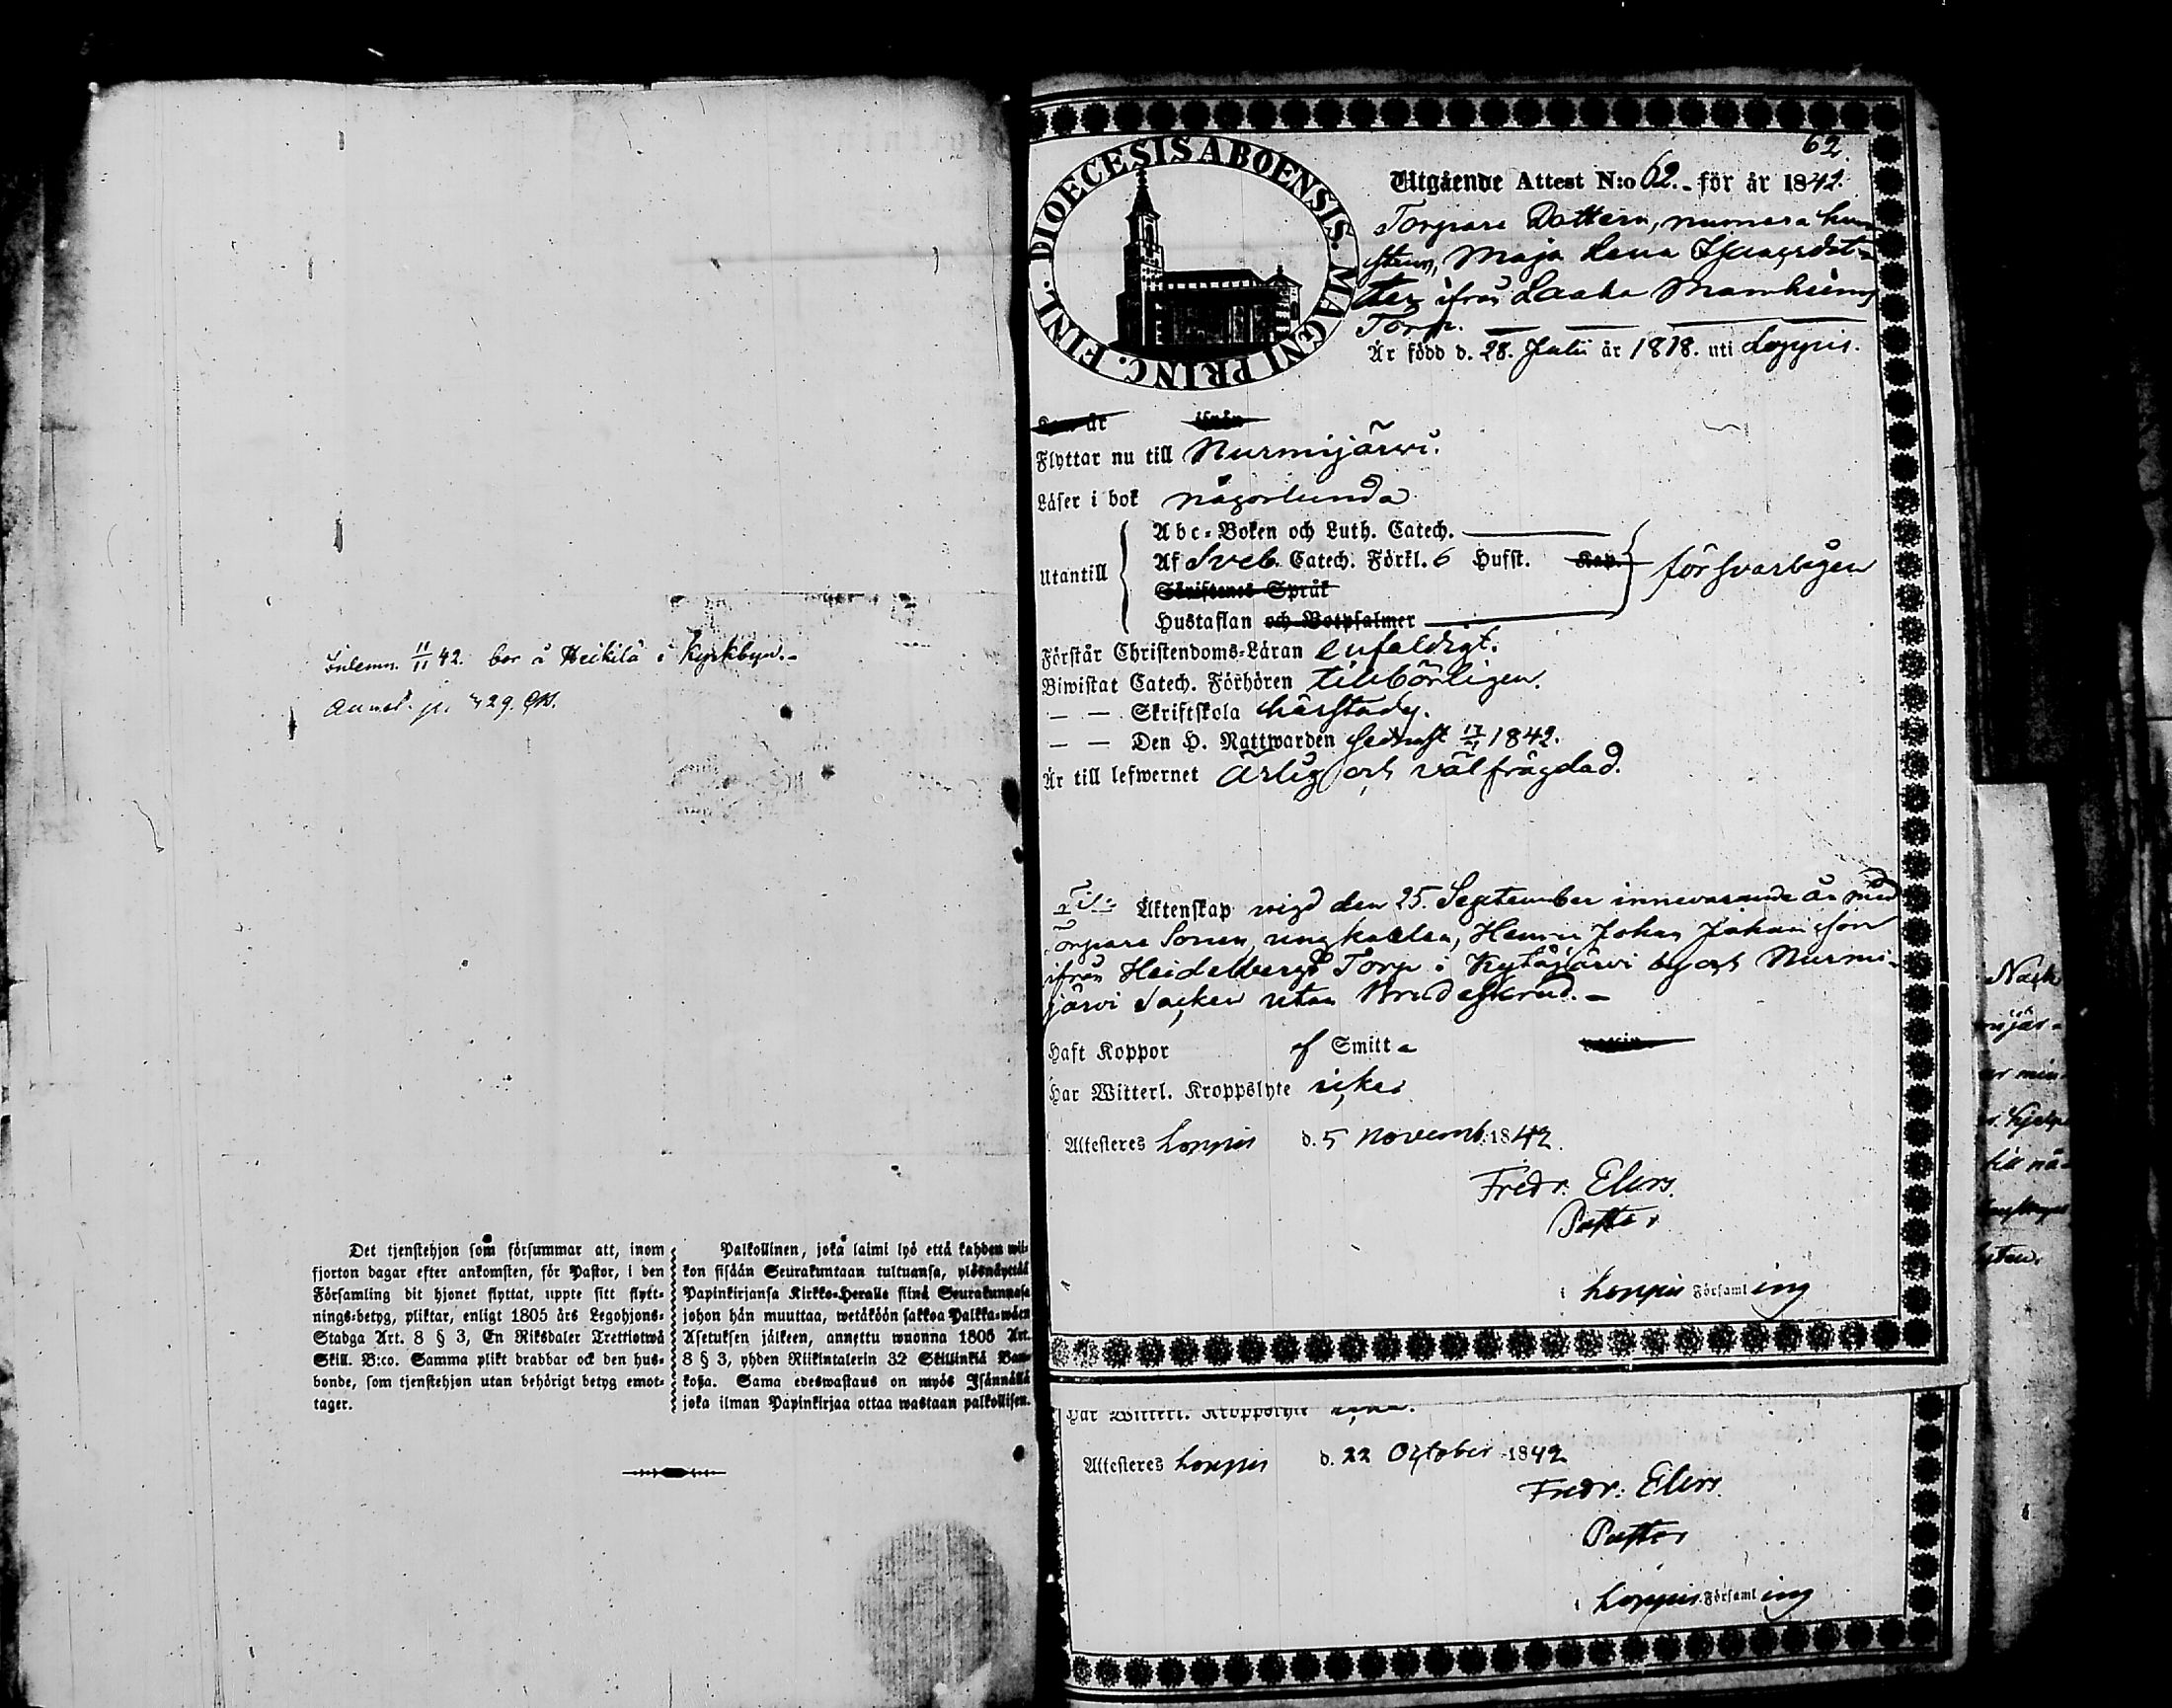 Inlemn. 11/11 42. bor å Heikilä i Kyrkbyn.-
Annot. p. 429.
Det tjenstehjon som försummar att, inom
fjorton dagar efter ankomsten, för Pastor, i den
Församling dit hjonet flyttat, uppte sitt flytt-
nings-betyg, pliktar, enligt 1805 års Legohjons-
Stadga Art. 8 § 3, En Riksdaler Trettiotwå
Skill. B:co. Samma plikt drabbar ock den hus-
bonde, som tjenstehjon utan behörigt betyg emot-
tager.
Palkollinen, joka laimi lyö että kahden wii-
kon sisään Seurakuntaan tultuansa, ylösnäyttää
Papinkirjansa Kirkko-Heralle siinä Seurakunnasa
johon hän muuttaa, wetäköön sakkoa Palkka-wäen
Asetuksen jälkeen, annettu wuonna 1805 Art.
8 § 3, yhden Riikintalerin 32 Skillinkiä Ban-
kosa. Sama edeswastaus on myös Isännällä
joka ilman Papinkirjaa ottaa wastaan palkollisen.
62.
DIOECESIS ABOENSIS. MAGNI PRINC. FINL.
Utgående Attest N:o 62.- för år 1842.
Torpare Dottern, numera hu-
strun, Maja Lena Isacsdot-
ter ifrån Laaka Mannheims
Torp.
Är född d. 28. Julii år 1818. uti Loppis.
är ifrån
Flyttar nu till Nurmijärwi.
Läser i bok någorlunda
Utantill
Abc-Boken och Luth. Catech.
Af Sveb. Catech. Förkl. 6 Hufst. Kap.
Skriftenes Språk
Hustaflan och Botpsalmer
försvarligen
Förstår Christendoms-Läran enfaldigt.
Biwistat Catech. Förhören tillbörligen.
— — Skriftskola härstädes.
— — Den H. Nattwarden sednast 1842.
Är till lefwernet Ärlig och välfrägdad.
Till Äktenskap wigd den 25. September innevarande år med
Torpare Sonen, ungkarlen, Johan Johansson
ifrån Heidelbergs Torp i Kytäjärvi by och Nurmi-
järvi Socken utan Brudeskrud.-
Haft Koppor af Smitta
Har Witterl. Kroppslyte icke.
Attesteres Loppis d. 5 Novemb. 1842.
Fredr. Elers.
Pastor
i Loppis Församling
Har Witterl. Kroppslyte icke.
Attesteres Loppis d. 22 October 1842
Fredr. Elers.
Pastor
i Loppis Församling